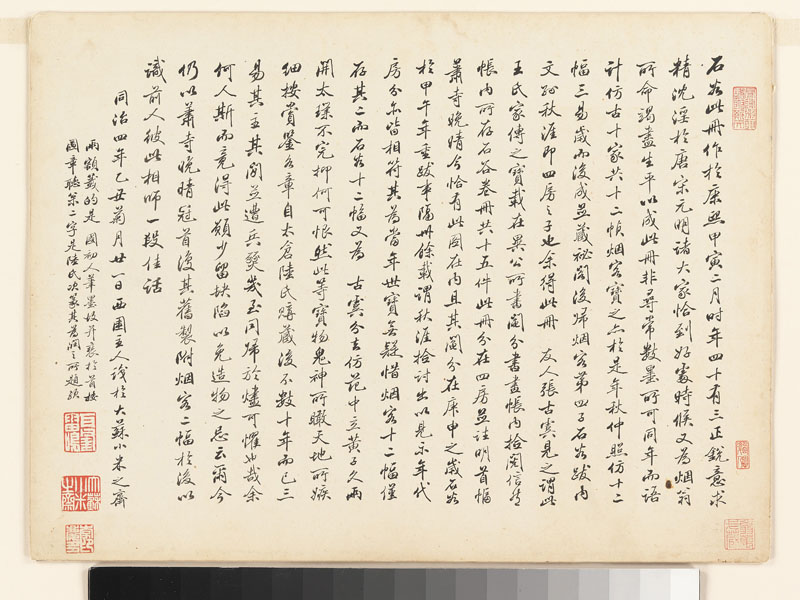 石谷此冊作於康熙甲寅二月時年四十有三正銳意求
精沈淫於唐宋元明諸大家恰到好處時候又為烟翁
所命竭盡生平以成此冊非尋常數墨所可同年而語
計仿古十家共十二帧烟客寶之亦於是年秋仲照仿十二
幅三易歲而後成並藏祕閣後歸烟客第四子石谷跋內
文趾秋涯即四房之子也余得此冊 友人張古虞見之謂此
王氏家傳之寶載在吳公所書鬮分書畫帳內拾閱信然
帳內所存石谷卷冊共十五件此冊分在四房並註明首幅
蕭寺晚晴今恰有此圖在內且其鬮分在庚申之歲石谷
於甲午年重跋事隔卅餘載謂秋涯撿討出以見示年代
房分亦皆相符其為當年世寶無疑惜烟客十二幅僅
存其二而石谷十二幅又為 古虞分去仿范中立黃子久兩
開太璞不完抑何可恨然此等寶物鬼神所瞰天地所嫉
細按賞鑒各章自太倉陸氏購藏後不數十年而已三
易其主其閣並遭兵燹幾至同歸於燼可懼也哉余
何人斯而竟得此額少留缺陷以免造物之忌云爾今
仍以蕭寺晚晴冠首復其舊製附烟客二幅於後以
識前人彼此相師一段佳話
同治四年乙丑菊月廿一日西圃主人識於大蘇小米之齋
兩額籤的是 國初人筆墨故并裝於首按
圖章聽泉二字是陸氏次裝其為潤之所題跋